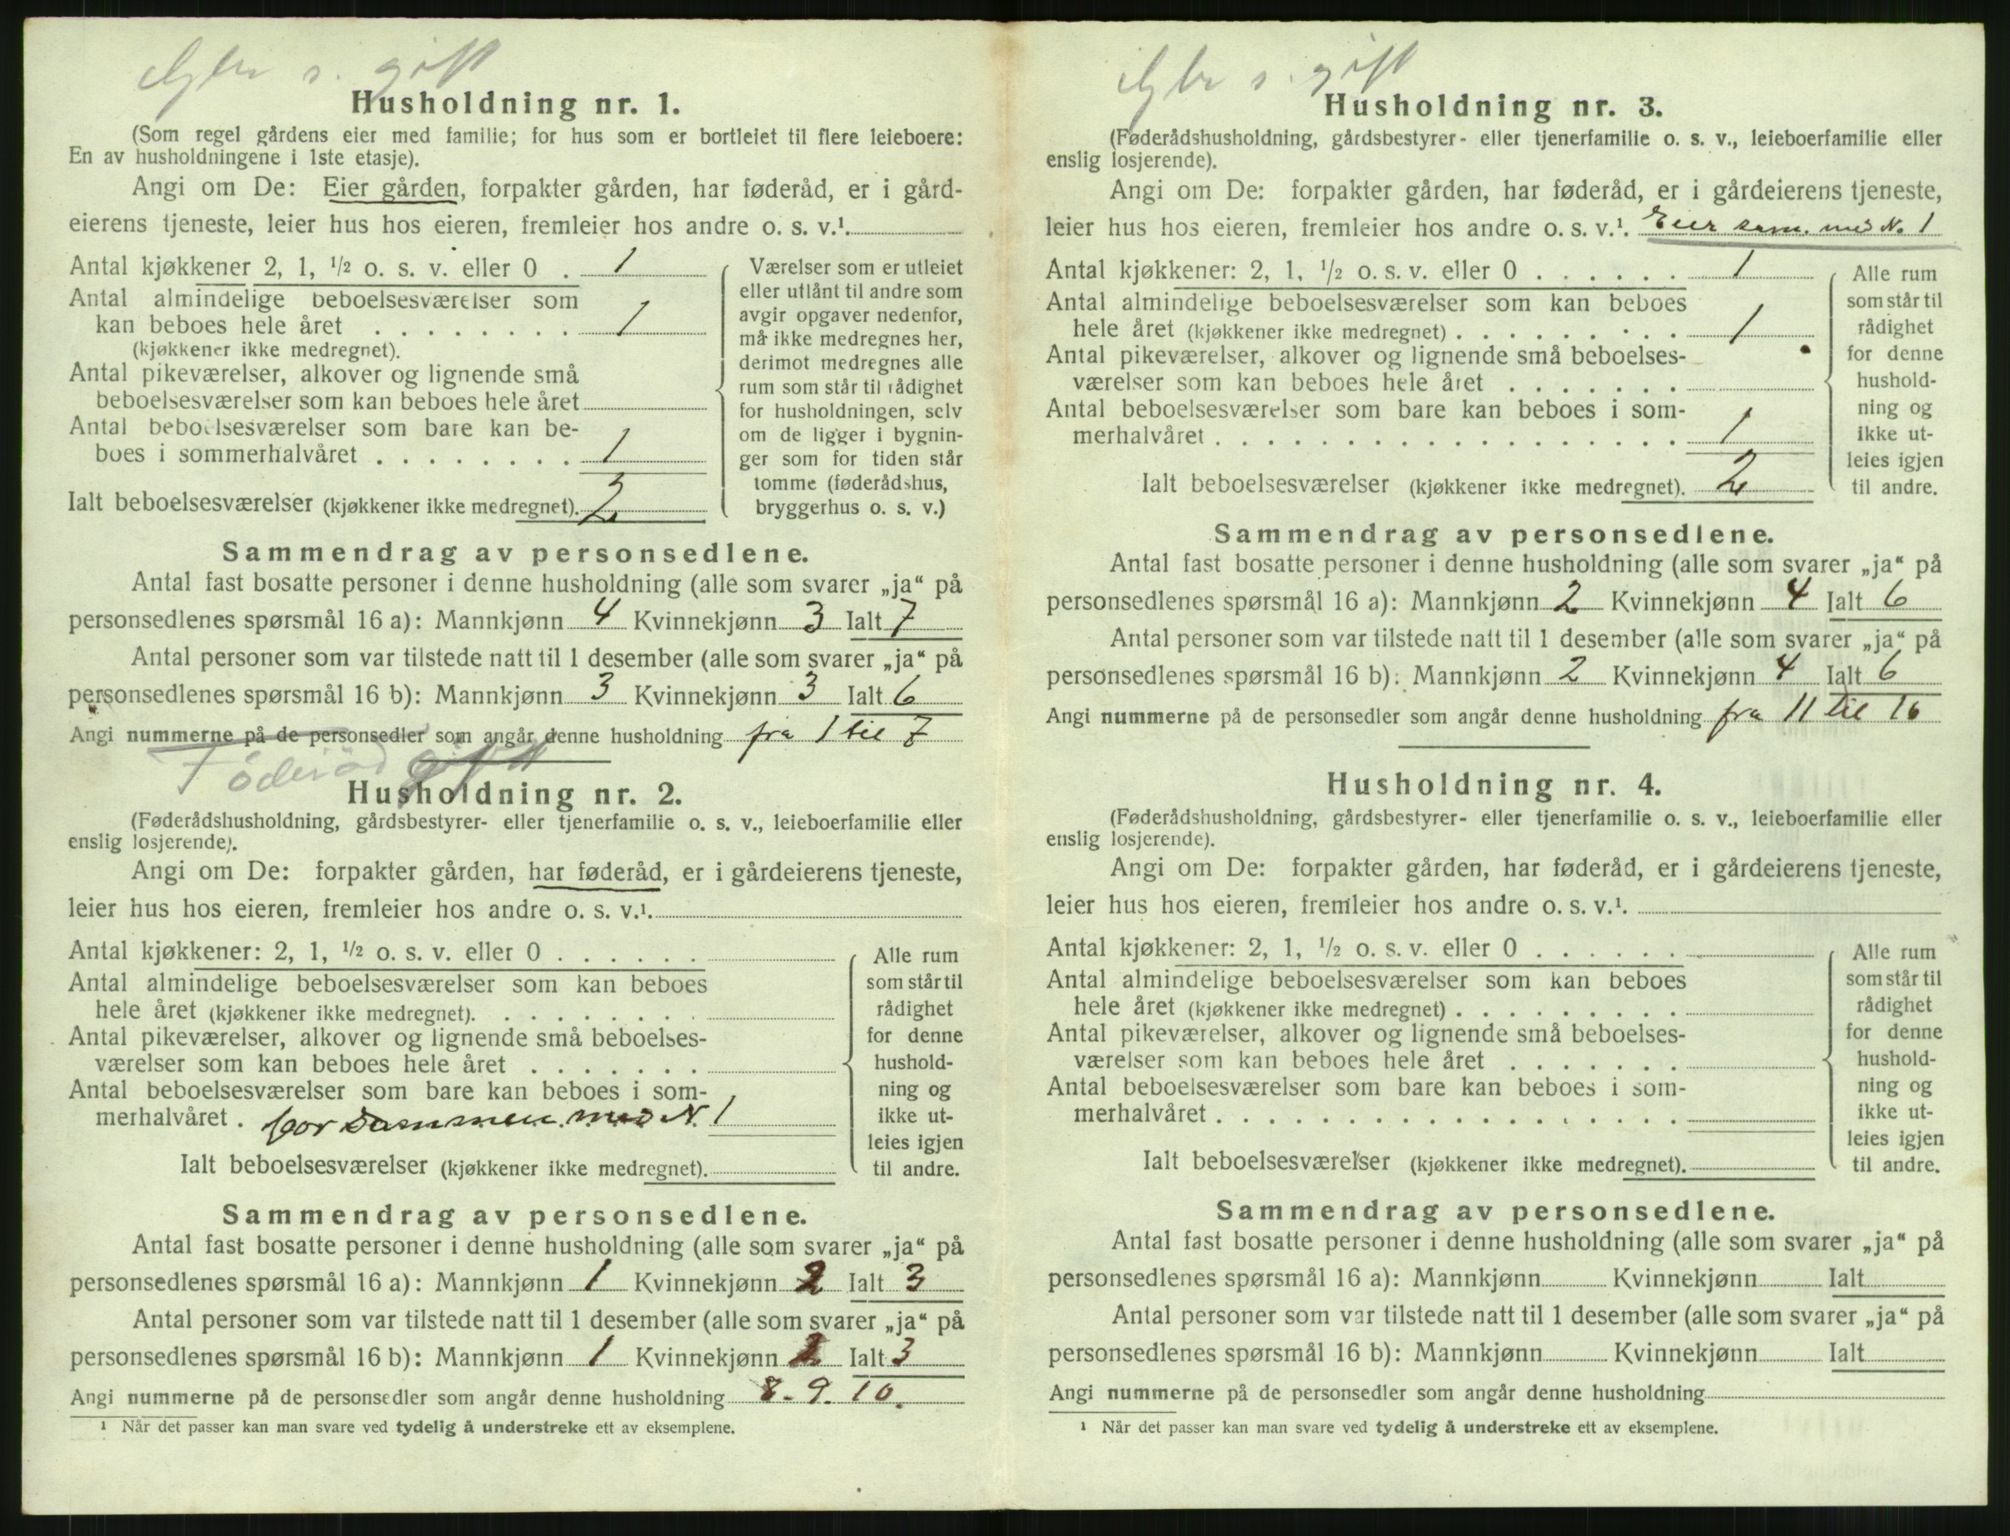 gift
Husholdning nr. 1.
(Som regel gårdens eier med familie; for hus som er bortleiet til flere leieboere:
En av husholdningene i 1ste etasje).
Angi om De: Eier gården, forpakter gården, har føderåd, er i gård-
eierens tjeneste, leier hus hos eieren, fremleier hos andre o. s. v.¹.
Antal kjøkkener 2, 1, ½ o. s. v. eller 0 . 1
Antal almindelige beboelsesværelser som
kan beboes hele året . . . . . . . . 1
(kjøkkener ikke medregnet).
Antal pikeværelser, alkover og lignende små
beboelsesværelser som kan beboes hele året
Antal beboelsesværelser som bare kan be-
boes i sommerhalvåret . . . . . . . . 1
Ialt beboelsesværelser (kjøkkener ikke medregnet). 2
Værelser som er utleiet
eller utlånt til andre som
avgir opgaver nedenfor,
må ikke medregnes her,
derimot medregnes alle
rum som står til rådighet
for husholdningen, selv
om de ligger i bygnin-
ger som for tiden står
tomme (føderådshus,
bryggerhus o. s. v.)
Sammendrag av personsedlene.
Antal fast bosatte personer i denne husholdning (alle som svarer „ja“ på
personsedlenes spørsmål 16 a): Mannkjønn 4 Kvinnekjønn 3 Ialt 7
Antal personer som var tilstede natt til 1 desember (alle som svarer „ja“ på
personsedlenes spørsmål 16 b): Mannkjønn 3 Kvinnekjønn 3 Ialt 6
Angi nummerne på de personsedler som angår denne husholdning fra 1 til 7
Føderåd gift
Husholdning nr. 2.
(Føderådshusholdning, gårdsbestyrer- eller tjenerfamilie o. s. v., leieboerfamilie eller
enslig losjerende).
Angi om De: forpakter gården, har føderåd, er i gårdeierens tjeneste,
leier hus hos eieren, fremleier hos andre o. s. v.¹.
Antal kjøkkener: 2, 1, ½ o. s. v. eller 0 . . . . . .
Antal almindelige beboelsesværelser som kan beboes
hele året (kjøkkener ikke medregnet). . . . . . . . .
Antal pikeværelser, alkover og lignende små beboelses-
værelser som kan beboes hele året . . . . . . .
Antal beboelsesværelser som bare kan beboes i som-
merhalvåret . bor sammen med N. 1
Ialt beboelsesværelser (kjøkkener ikke medregnet).
Alle rum
som står til
rådighet
for denne
hushold-
ning og
ikke ut-
leies igjen
til andre.
Sammendrag av personsedlene.
Antal fast bosatte personer i denne husholdning (alle som svarer „ja“ på
personsedlenes spørsmål 16 a): Mannkjønn 1 Kvinnekjønn 2 Ialt 3
Antal personer som var tilstede natt til 1 desember (alle som svarer „ja“ på
personsedlenes spørsmål 16 b): Mannkjønn 1 Kvinnekjønn 2 Ialt 3
Angi nummerne på de personsedler som angår denne husholdning 8-9.10.
¹ Når det passer kan man svare ved tydelig å understreke ett av eksemplene.
gift
Husholdning nr. 3.
(Føderådshusholdning, gårdsbestyrer- eller tjenerfamilie o. s. v., leieboerfamilie eller
enslig losjerende).
Angi om De: forpakter gården, har føderåd, er i gårdeierens tjeneste,
leier hus hos eieren, fremleier hos andre o. s. v.¹. Eier sam. med N. 1
Antal kjøkkener: 2, 1, ½ o. s. v. eller 0 . . . . . . 1
Antal almindelige beboelsesværelser som kan beboes
hele året (kjøkkener ikke medregnet) . . . . . . . . . 1
Antal pikeværelser, alkover og lignende små beboelses-
værelser som kan beboes hele året . . . . . . .
Antal beboelsesværelser som bare kan beboes i som-
merhalvåret . . . . . . . . . . . . . . . . . . 1
Ialt beboelsesværelser (kjøkkener ikke medregnet). 2
Alle rum
som står til
rådighet
for denne
hushold-
ning og
ikke ut-
leies igjen
til andre.
Sammendrag av personsedlene.
Antal fast bosatte personer i denne husholdning (alle som svarer „ja“ på
personsedlenes spørsmål 16 a): Mannkjønn 2 Kvinnekjønn 4 Ialt 6
Antal personer som var tilstede natt til 1 desember (alle som svarer „ja“ på
personsedlenes spørsmål 16 b). Mannkjønn 2 Kvinnekjønn 4 Ialt 6
Angi nummerne på de personsedler som angår denne husholdning fra 11 til 16
Husholdning nr. 4.
(Føderådshusholdning, gårdsbestyrer- eller tjenerfamilie o. s. v., leieboerfamilie eller
enslig losjerende).
Angi om De: forpakter gården, har føderåd, er i gårdeierens tjeneste,
leier hus hos eieren, fremleier hos andre o. s. v.¹.
Antal kjøkkener: 2, 1, ½ o. s. v. eller 0 . . . . . .
Antal almindelige beboelsesværelser som kan beboes
hele året (kjøkkener ikke medregnet) . . . . . . . . .
Antal pikeværelser, alkover og lignende små beboelses-
værelser som kan beboes hele året . . . . . . .
Antal beboelsesværelser som bare kan beboes i som-
merhalvåret . . . . . . . . . . . . . . . . . .
Ialt beboelsesværelser (kjøkkener ikke medregnet).
Alle rum
som står til
rådighet
for denne
hushold-
ning og
ikke ut-
leies igjen
til andre.
Sammendrag av personsedlene.
Antal fast bosatte personer i denne husholdning (alle som svarer „ja“ på
personsedlenes spørsmål 16 a): Mannkjønn Kvinnekjønn Ialt
Antal personer som var tilstede natt til 1 desember (alle som svarer „ja“ på
personsedlenes spørsmål 16 b): Mannkjønn Kvinnekjønn Ialt
Angi nummerne på de personsedler som angår denne husholdning
¹ Når det passer kan man svare ved tydelig å understreke ett av eksemplene.